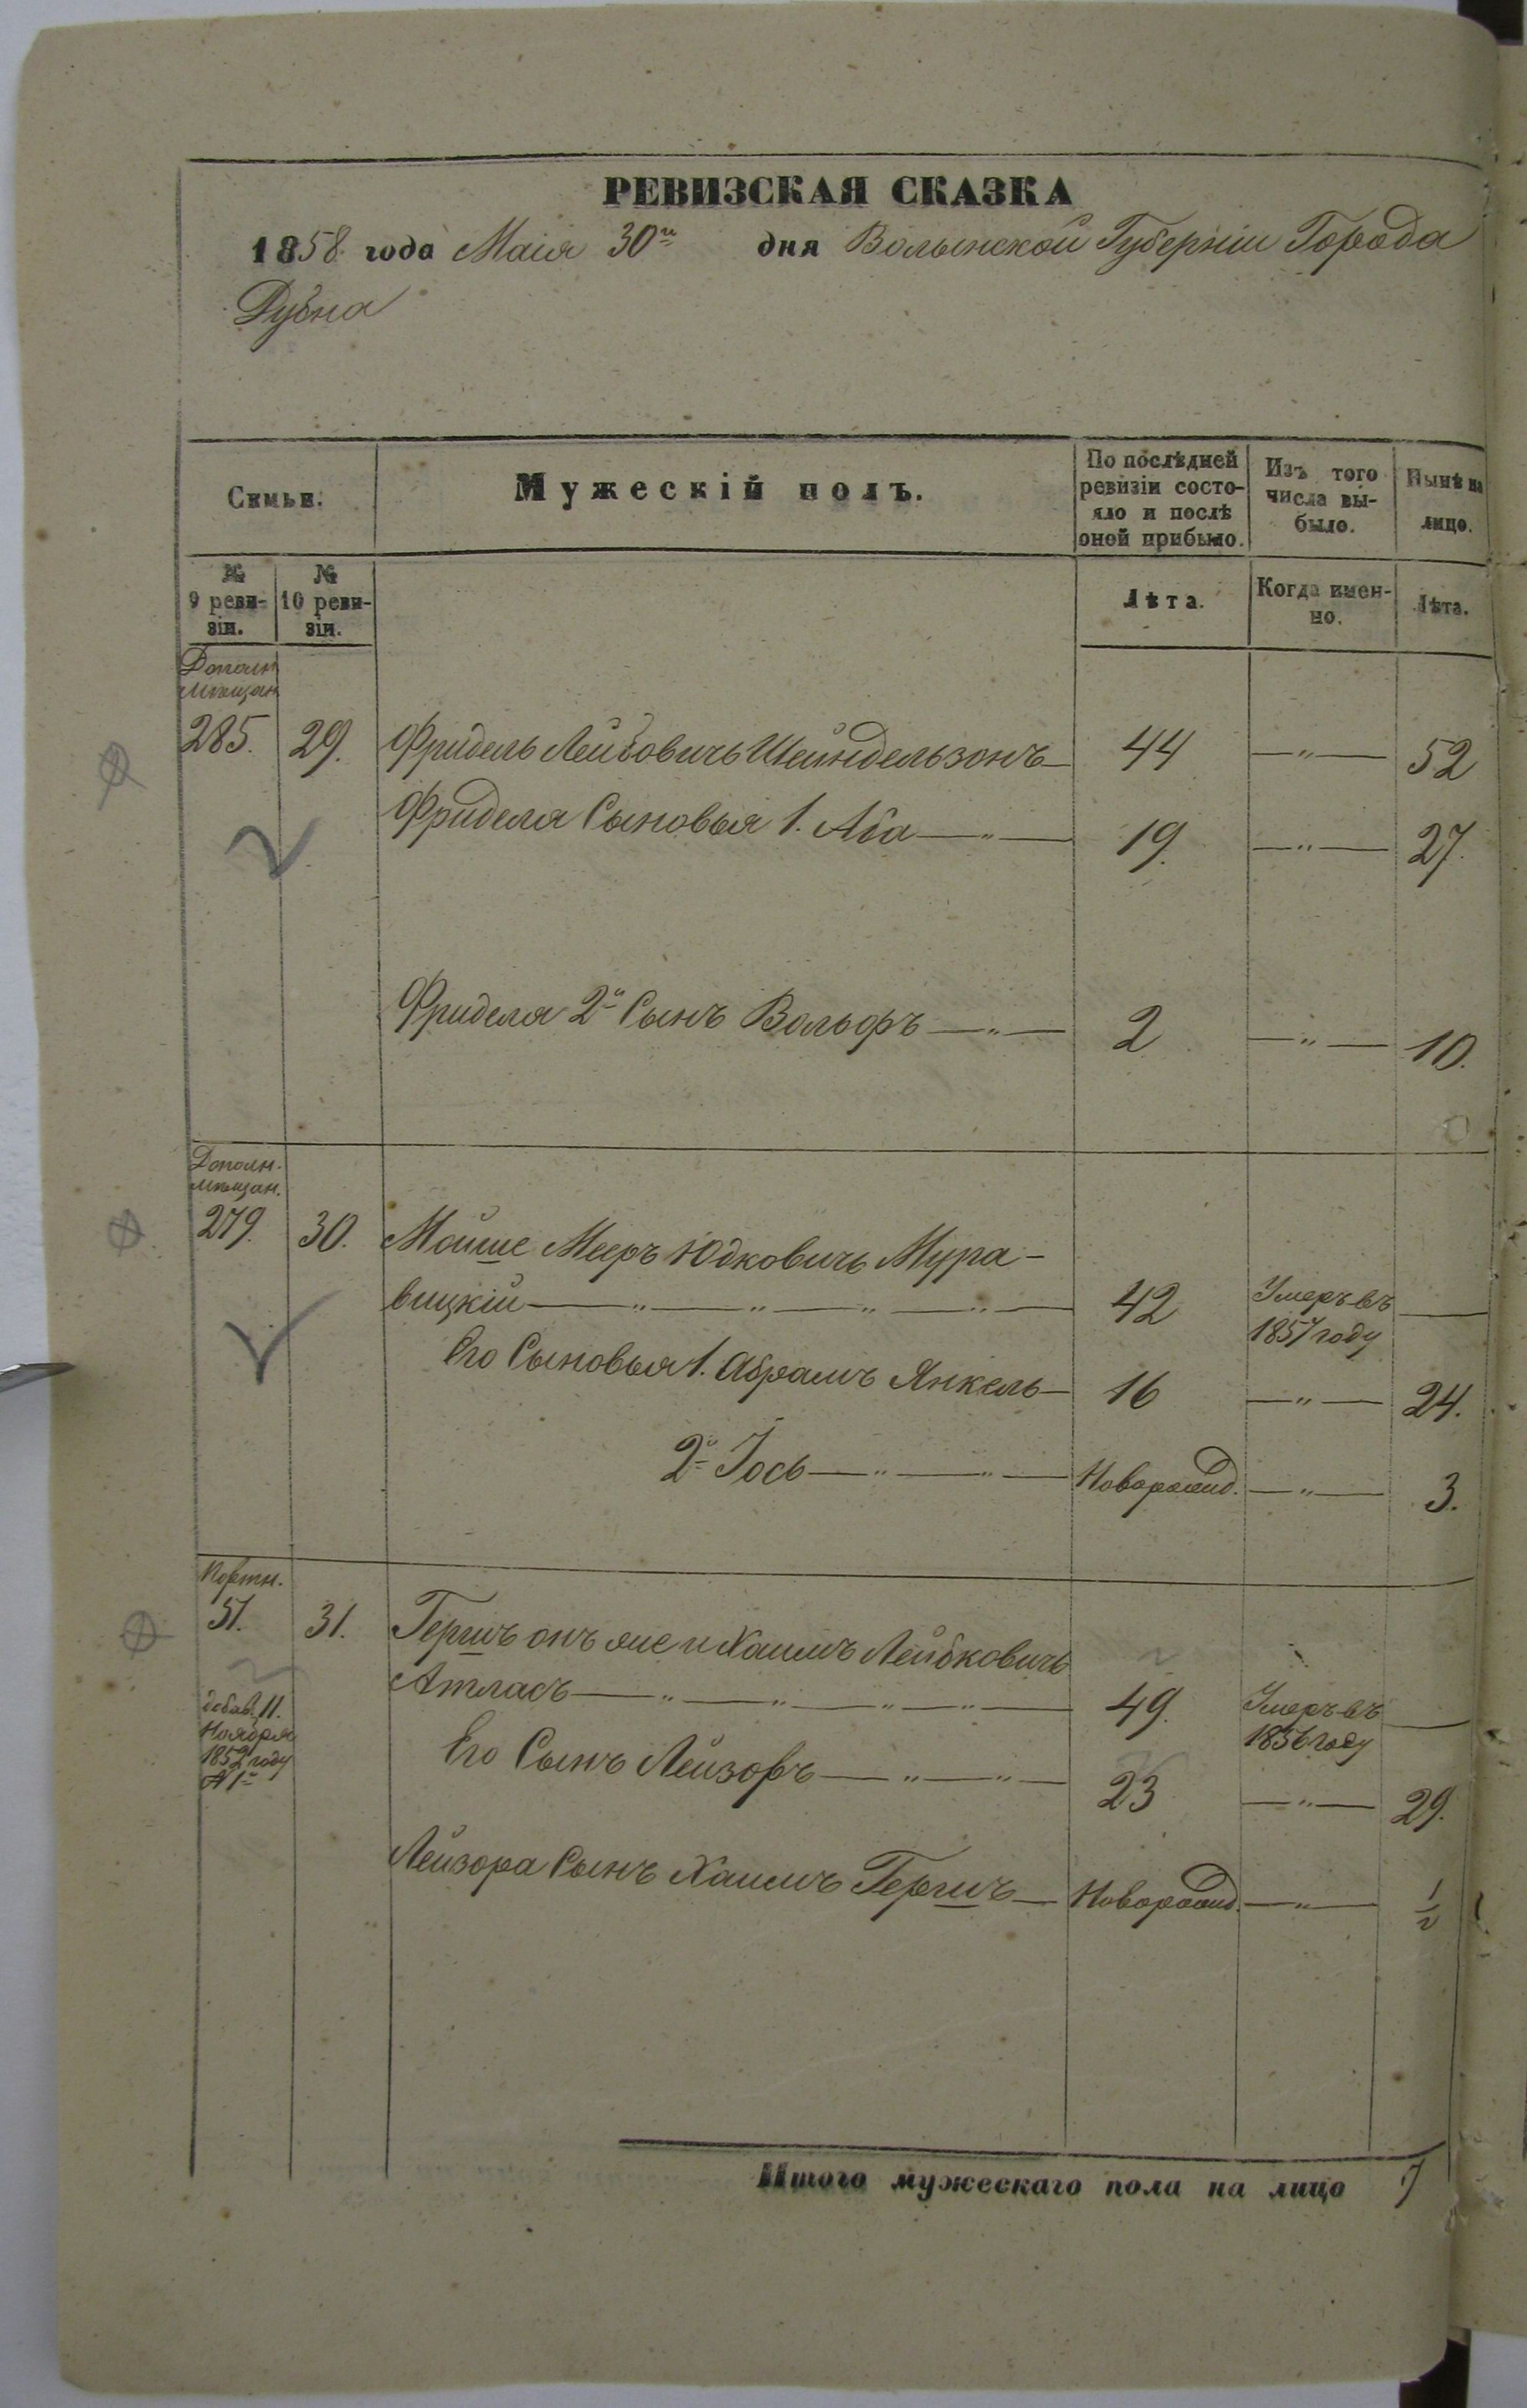 РЕВИЗСКАЯ СКАЗКА
1858 года Маія 30го дня Волынской Губерніи Города
Дубна
Симьи.
Мужескій полъ.
По послѣдней
ревизіи состо-
яло и послѣ
оней прибыло.
Изъ того
числа вы-
было.
Нынѣ на
лицо.
№
9 реви-
зіи.
№
10 реви-
зіи.
Лѣта.
Когда имен-
но.
Лѣта.
Дополн
мѣщан
285. 29. Фридель Лейбовичъ Шейндельзонъ — 44 — " — 52
Фриделя Сыновья 1. Аба — " — 19. — " — 27.
Фриделя 2й Сынъ Вольфъ — " — 2 — " — 10.
Дополн.
мѣщан.
279. 30. Мойше Мееръ Юдковичъ Мура-
вицкій — " — " — " — " — 42 Умеръ въ
1857 году —
Его Сыновья 1. Абрамъ Янкель — 16 — " — 24.
2й Іось — " — " — Новорожд. — " — 3.
Портн.
51. 31. Гершъ онъ же и Хаимъ Лейбковичъ
Атласъ — " — " — " — " — 49. Умеръ въ
1856 году —
добав. 11.
Ноября
1852 году
№ 1й
Его Сынъ Лейзоръ — " — " — 23 — " — 29.
Лейзора Сынъ Хаимъ Гершъ — Новорожд. — " — 1/2
Итого мужескаго пола на лицо 7